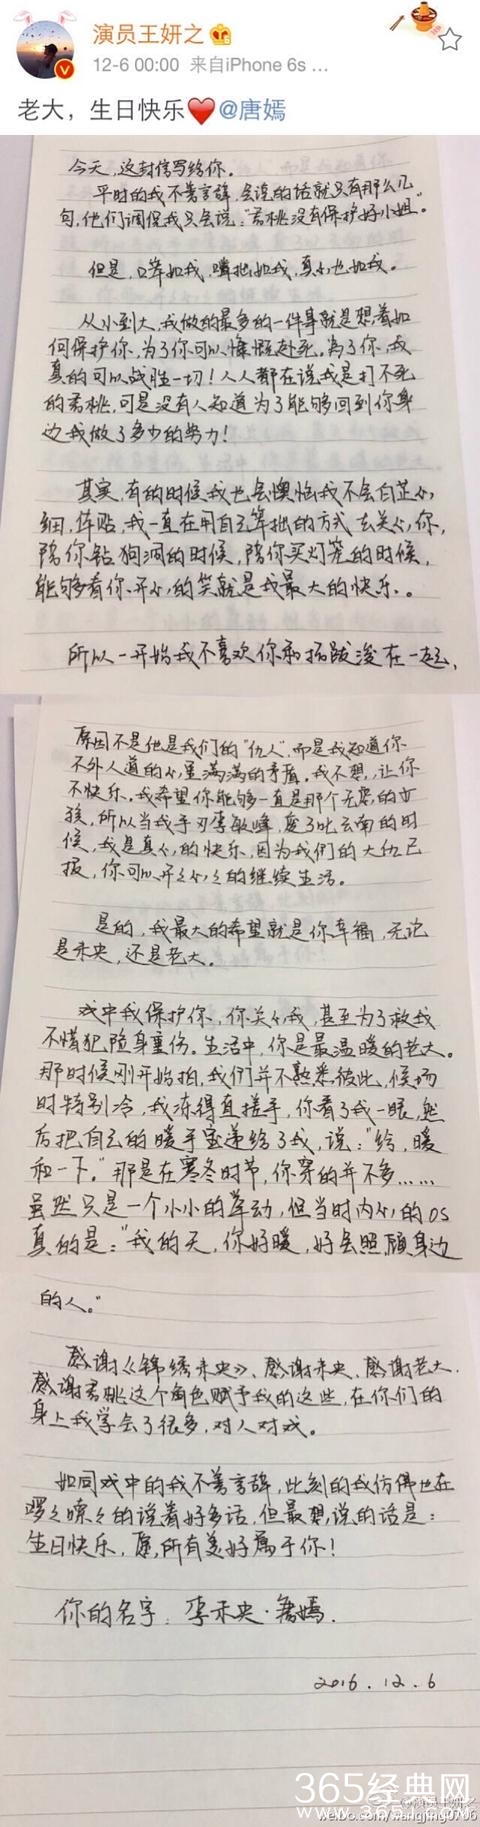 演员王妍之
12-6 00:00 来自iPhone 6s ...
老大，生日快乐❤@唐嫣
今天，这封信写给你。
平时的我不善言辞，会说的话就只有那么几
句，他们调侃我只会说：“君桃没有保护好小姐”。
但是，口笨如我，嘴拙如我，真心也如我。
从小到大，我做的最多的一件事就是想着如
何保护你，为了你可以慷慨赴死。为了你，我
真的可以战胜一切！人人都在说我是打不死
的君桃，可是没有人知道为了能够回到你身
边我做了多少的努力！
其实，有的时候我也会懊恼我不会白芷心
细，体贴，我一直在用自己笨拙的方式去关心你，
陪你钻狗洞的时候，陪你买灯笼的时候，
能够看你开心的笑就是我最大的快乐。
所以一开始我不喜欢你和拓跋浚在一起，
原因不是他是我们的“仇人”，而是我知道你
不外人道的心里满满的矛盾。我不想，让你
不快乐。我希望你能够一直是那个无忧的女
孩，所以当我手刃李敏峰，废了叱云南的时
候，我是真心的快乐，因为我们的大仇已
报，你可以开开心心的继续生活。
是的，我最大的希望就是你幸福，无论
是未央，还是老大。
戏中我保护你，你关心我，甚至为了救我
不惜犯险身重伤。生活中，你是最温暖的老大。
那时候刚开始拍，我们并不熟悉彼此，候场
时特别冷，我冻得直搓手，你看了我一眼，然
后把自己的暖手宝递给了我，说：“给，暖
和一下。”那是在寒冬时节，你穿的并不多……
虽然只是一个小小的举动，但当时内心的OS
真的是：“我的天，你好暖，好会照顾身边
的人。”
感谢《锦绣未央》、感谢未央、感谢老大、
感谢君桃这个角色赋予我的这些，在你们的
身上我学会了很多，对人对戏。
如同戏中的我不善言辞，此刻的我仿佛也在
啰啰嗦嗦的说着好多话，但最想说的话是：
生日快乐，愿所有美好属于你！
你的名字：李未央·唐嫣.
2016.12.6
365经典网
www.365j.com
@演员王妍之
weibo.com/wangjing0706